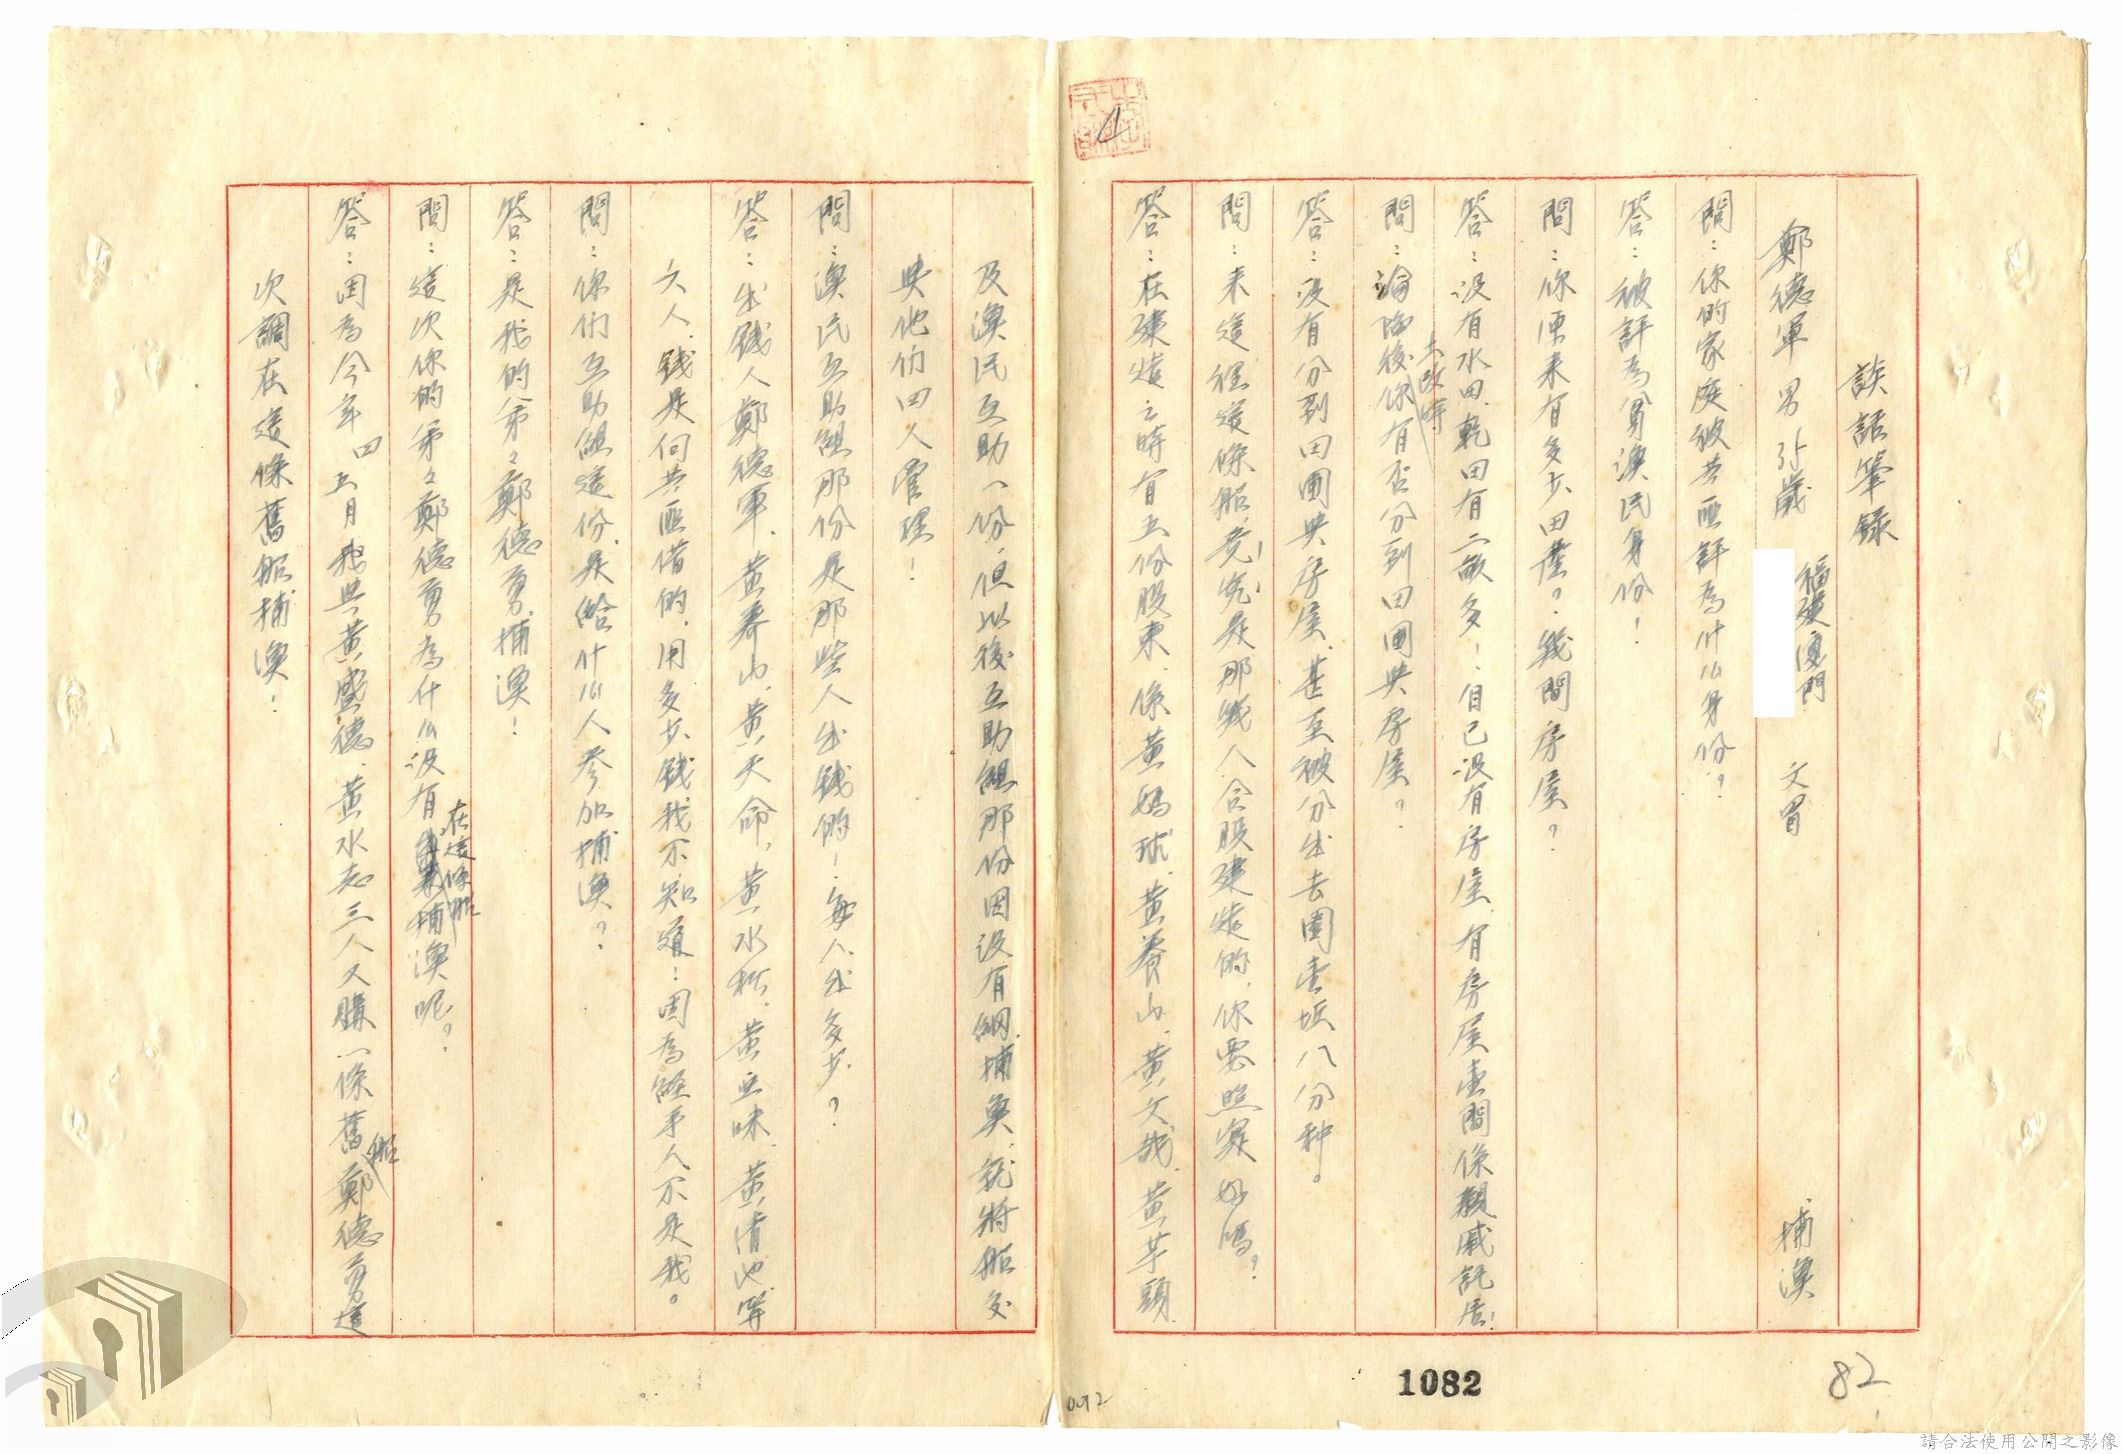 談話筆錄
鄭德軍 男 歲 福建廈門 文盲 捕漁
問：你的家庭被共匪評為什么身份？
答：被評為貧漁民身份！
問：你原来有多少田產？幾間房屋？
答：没有水田、乾田有二畝多！自己没有房屋、有房屋壹間係親戚託居！
問：淪陷後你土改時有否分到田園與房屋？
答：没有分到田園與房屋、甚至被分出去園壹坵八分种。
問：来這裡這條船、竟！究是那幾人合股建造的、你要照实好嗎？
答：在建造之時有五份股東、係黃媽球、黃養山、黃文哉、黃芋頭
及漁民互助一份、但以後互助組那份因没有網捕魚、就將船交
與他们四人管理！
問：漁民互助組那份是那些人出錢的！每人出多少？
答：出錢人鄭德軍、黃養山、黃天命、黃水杉、黃豆味、黃清池等
六人、錢是向共匪借的、用多少錢我不知道！因為經手人不是我。
問：你们互助組這份、是給什么人參加捕漁？
答：是我的弟々鄭德勇、捕漁！
問：這次你的弟々鄭德勇為什么没有在這條船捕漁呢？
答：因為今年四五月我與黃盛德、黃水志三人又購一條舊船鄭德勇這
次調在這條舊船捕漁！
1082
82
092
請合法使用公開之影像